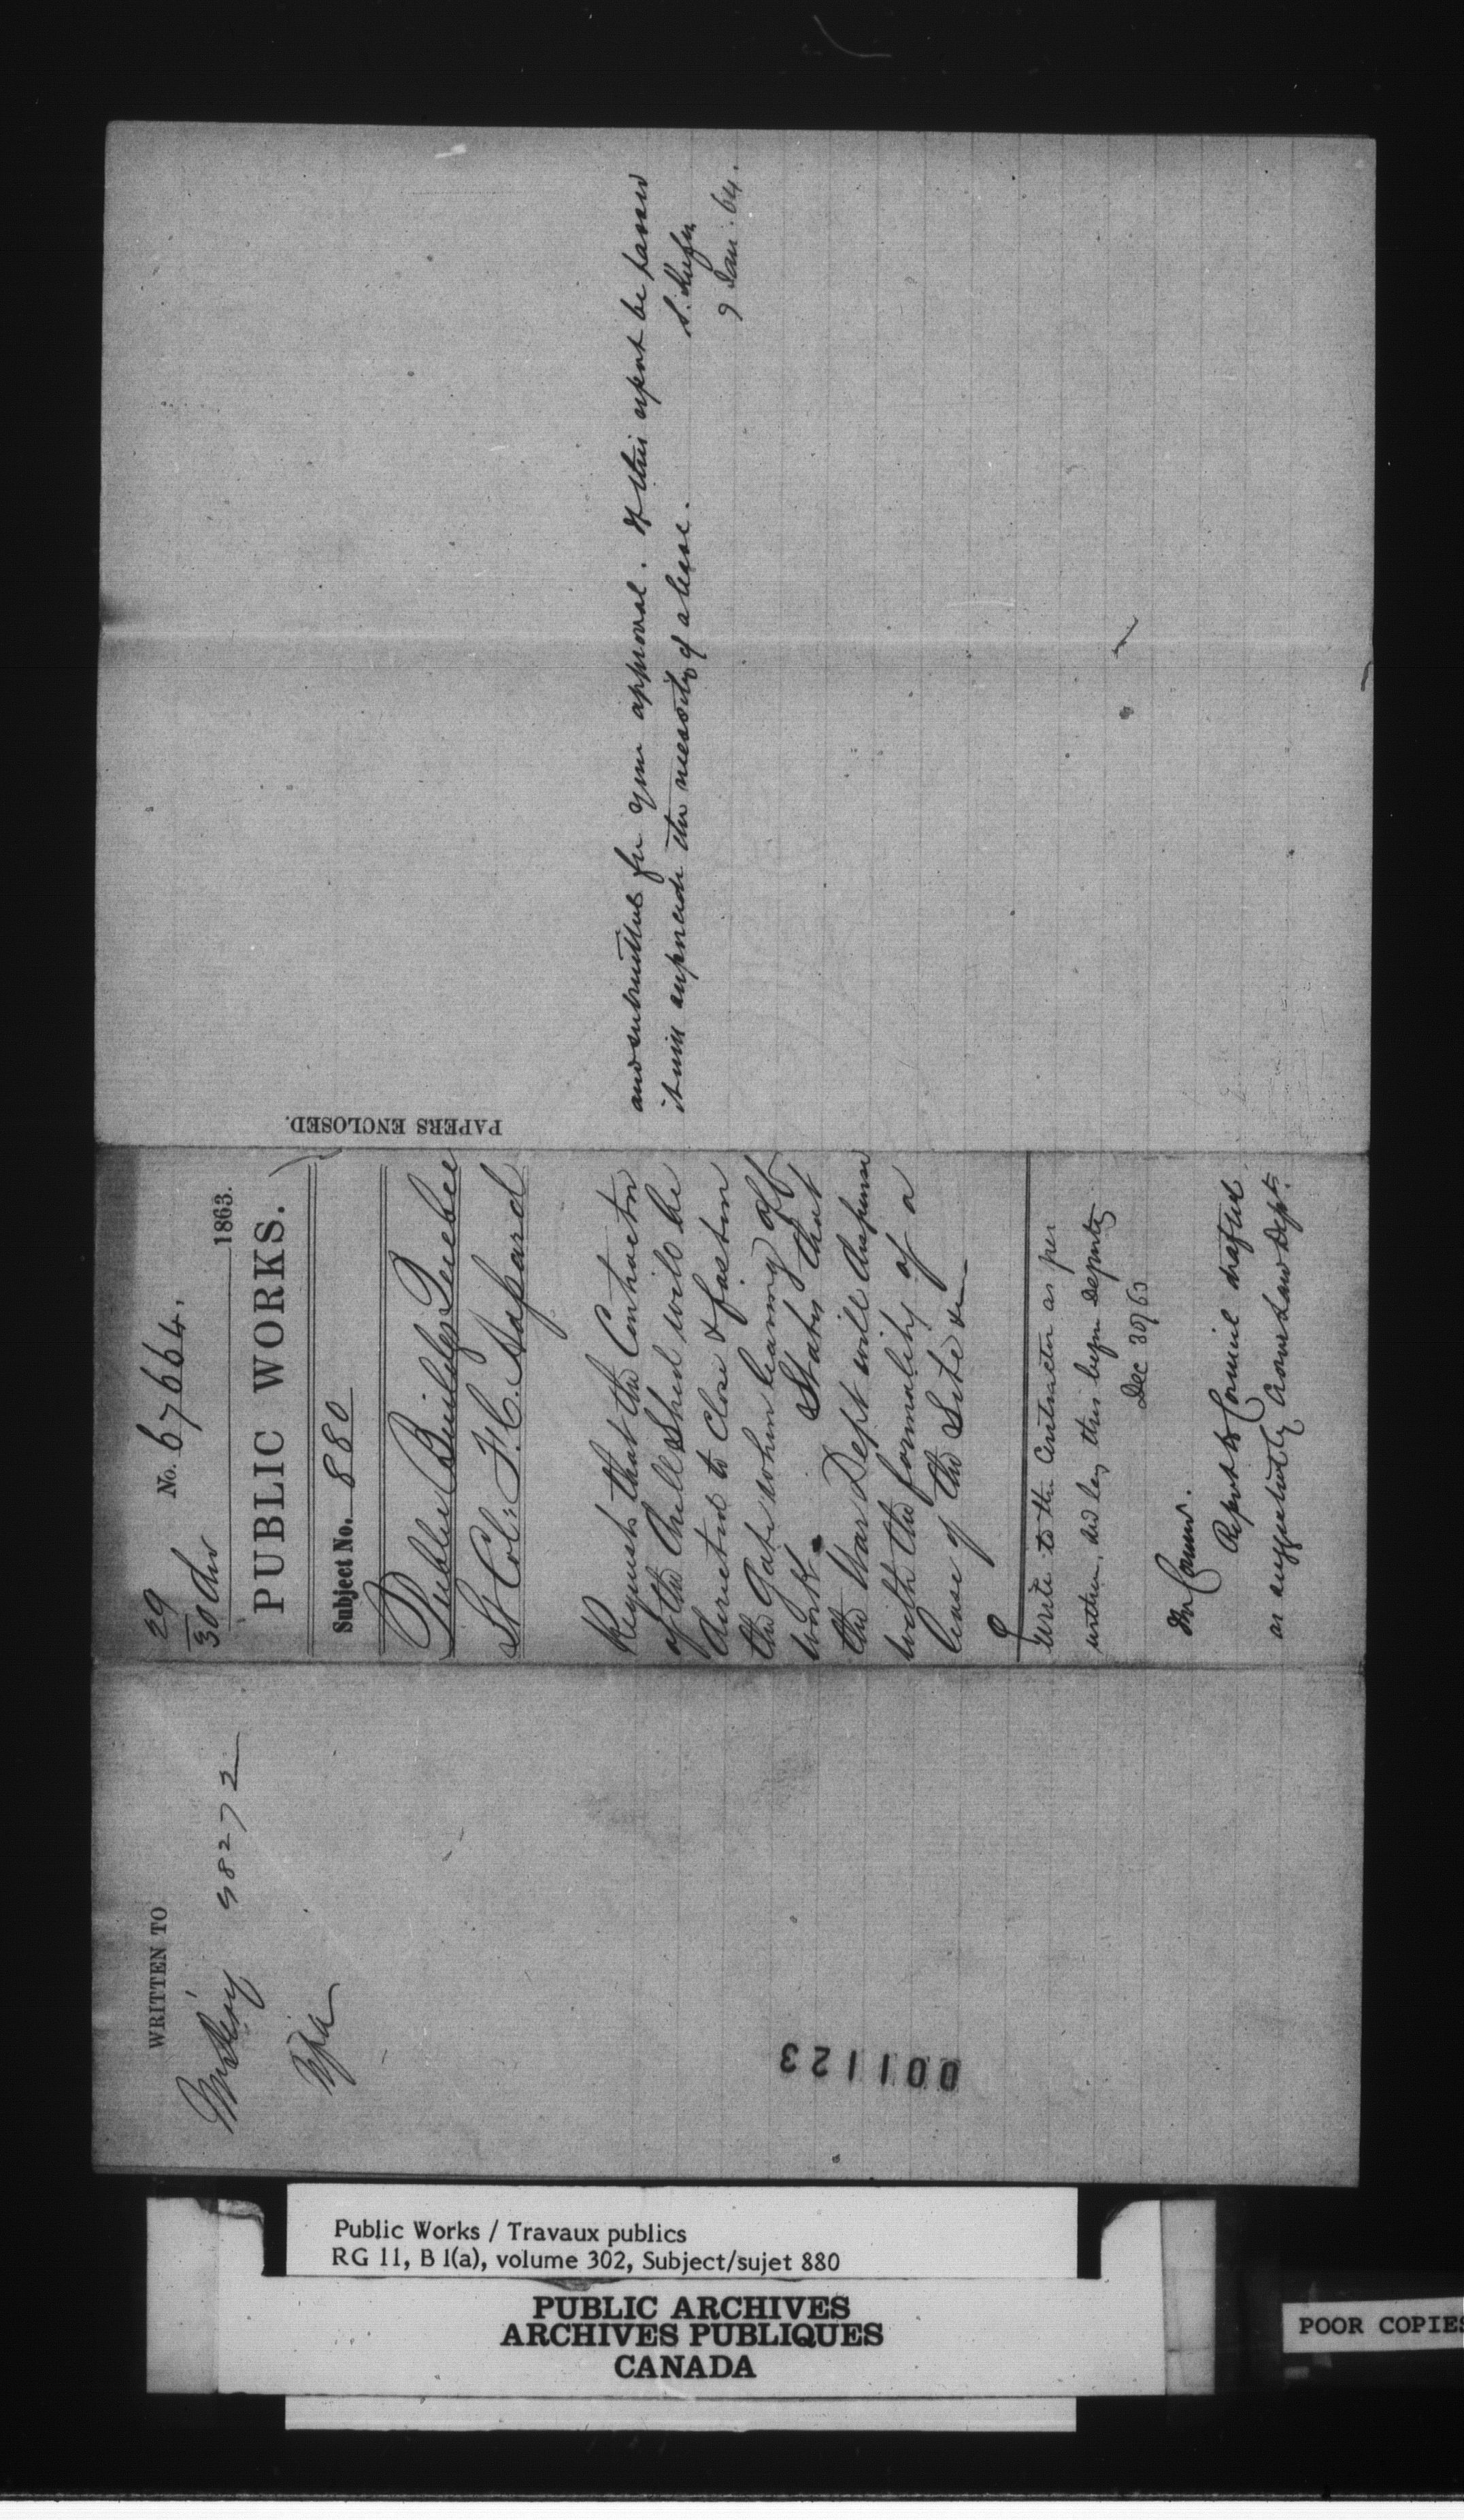 WRITTEN TO
9872
001123
29
30 Dec 1863.
No. 67664.
PUBLIC WORKS.
Subject No. 880
Public Buildgs Quebec
Lt Col: F. C.
Requests that the Contractor
of the Drill Shed will be
directed to close & fasten
the Gate when leaving off
work. States that
the War Dept will dispense
with the formality of a
lease of the Site &c
Write to the Contractor as per
within, and lay this before Deputy
Dec 30/63
The Comr.
Report to Council drafted
as suggested by Crown Law Dept.
PAPERS ENCLOSED.
and submitted for your approval. If this report be passed
it will supersede the necessity of a lease.
9 Jan. 64.
Public Works / Travaux publics
RG 11, B 1(a), volume 302, Subject/sujet 880
PUBLIC ARCHIVES
ARCHIVES PUBLIQUES
CANADA
POOR COPIES